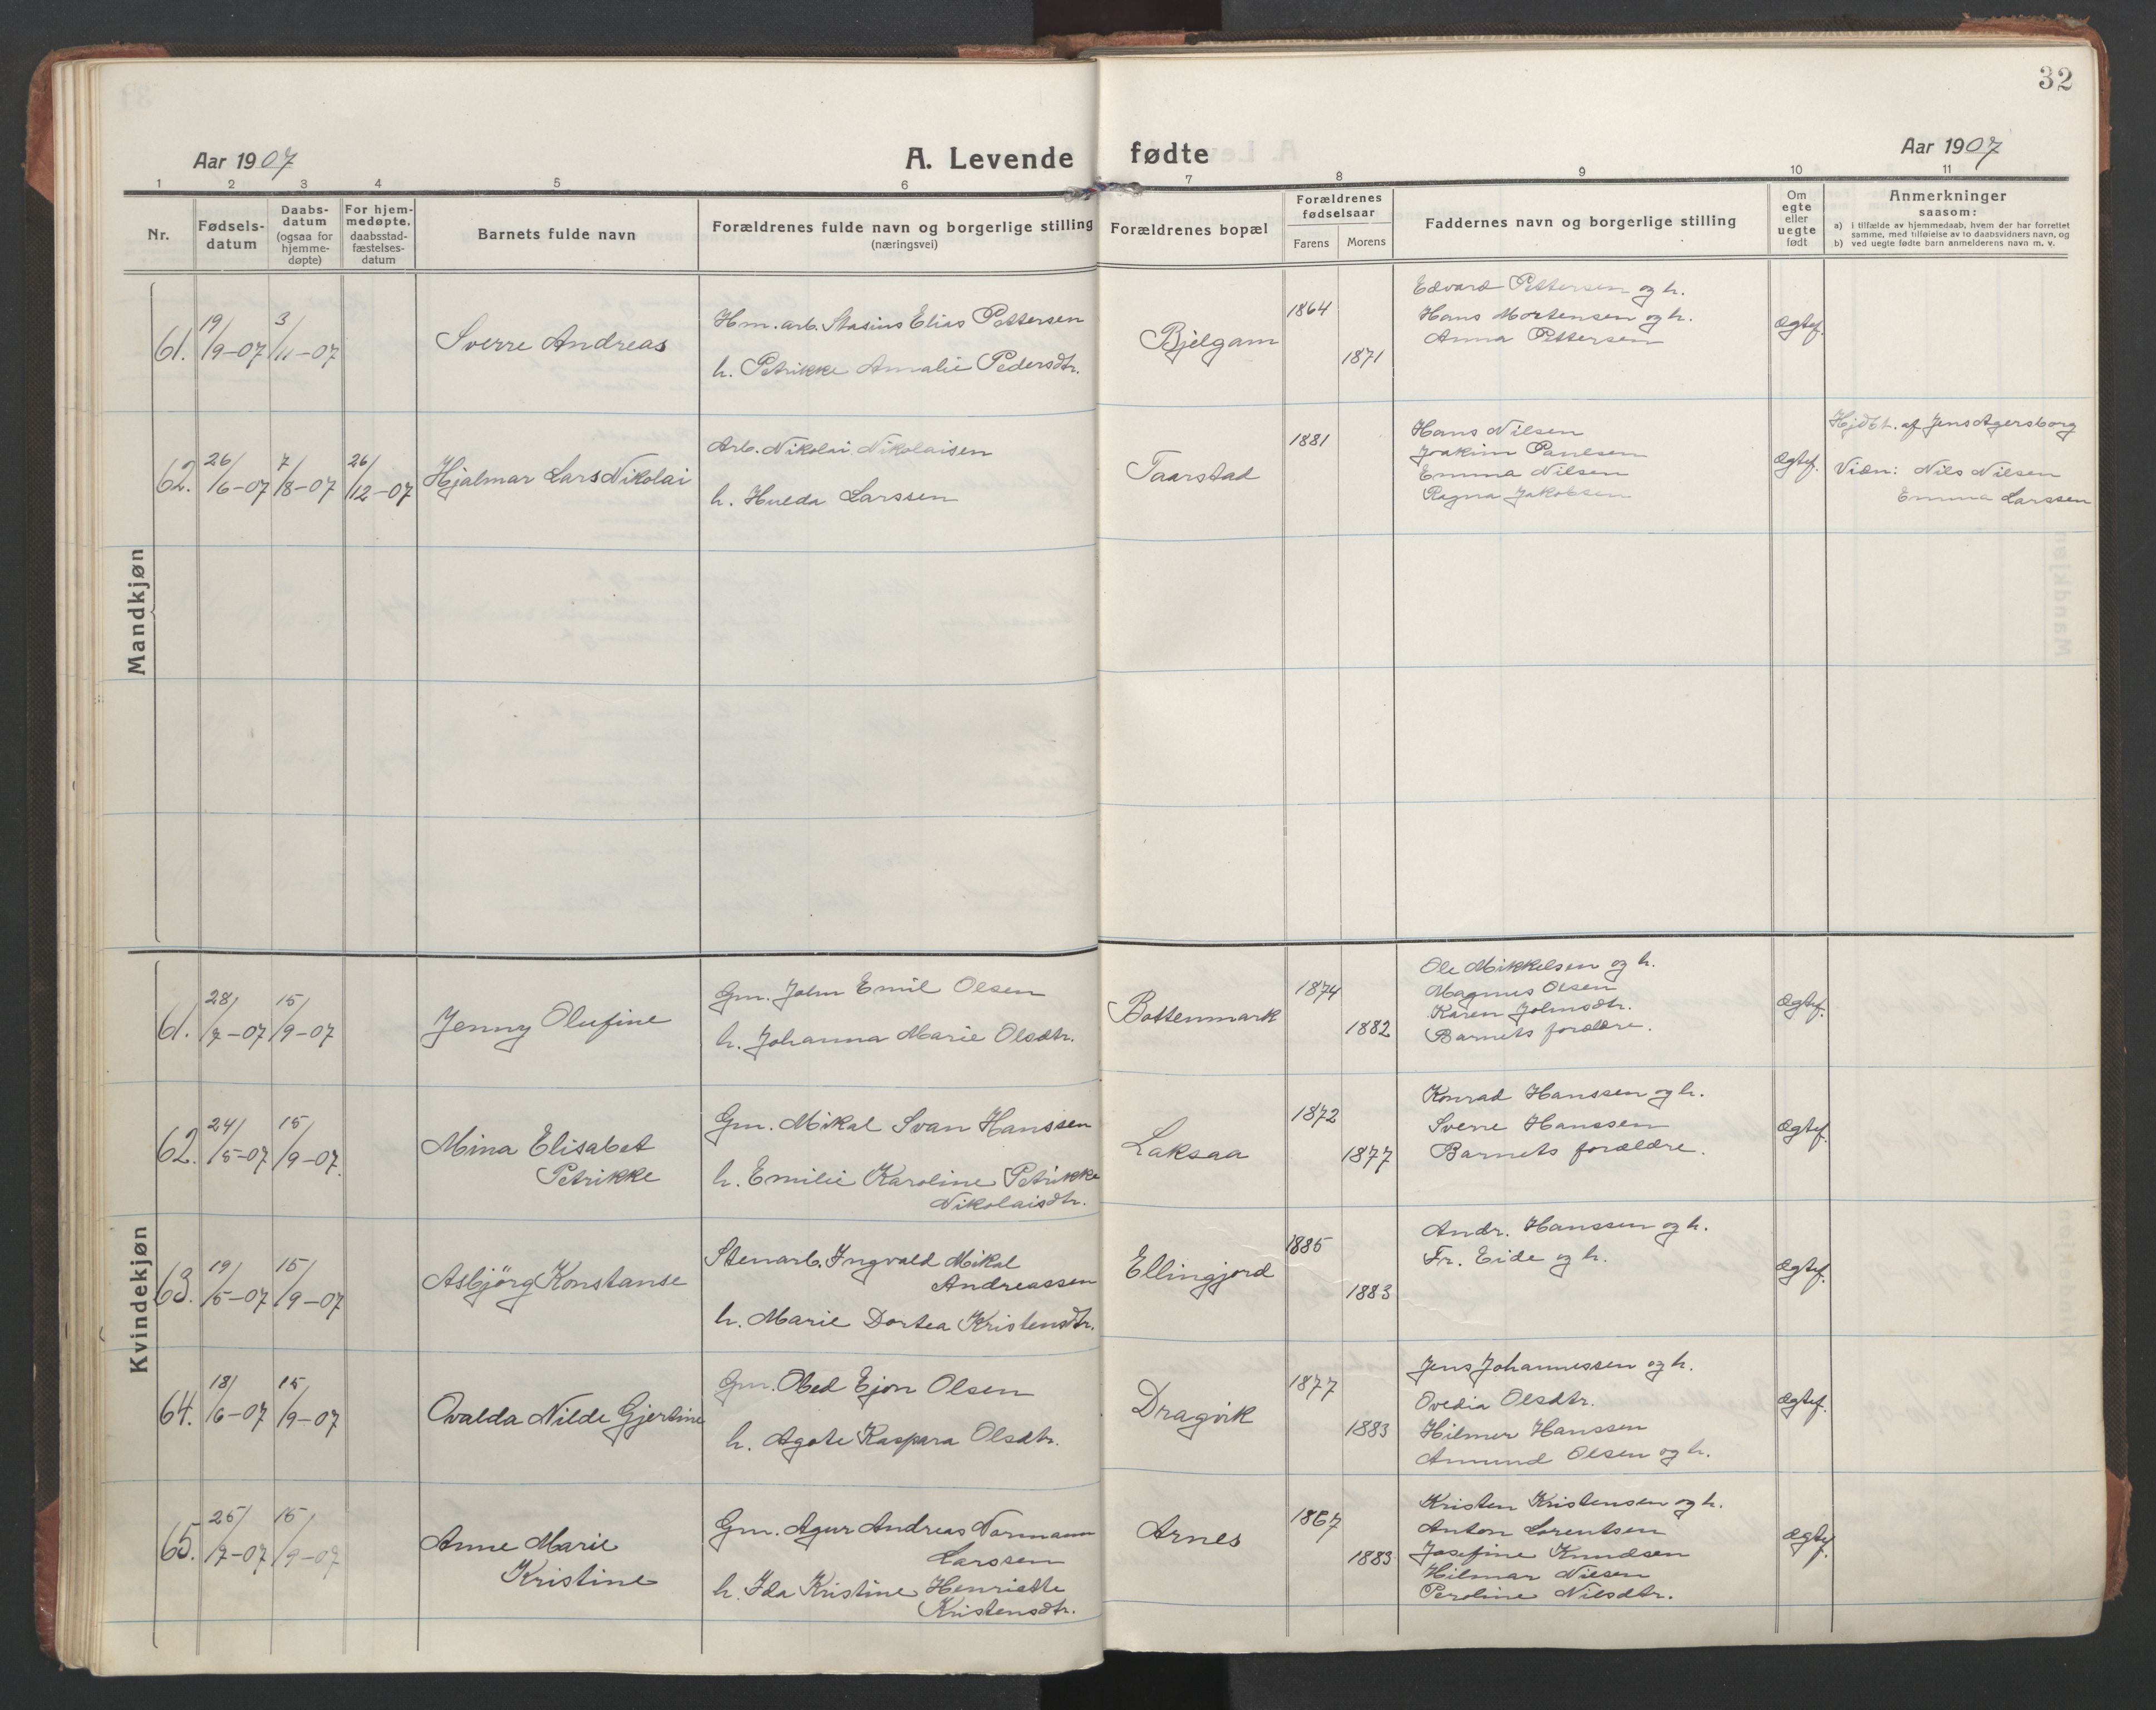 32
Aar 1907
A. Levende fødte
Aar 1907
1 2 3 4 5 6 7 8 9 10 11
Nr.
Fødsels-
datum
Daabs-
datum
(ogsaa for
hjemme-
døpte)
For hjem-
medøpte,
daabsstad-
fæstelses-
datum
Barnets fulde navn
Forældrenes fulde navn og borgerlige stilling
(næringsvei)
Forældrenes bopæl
Forældrenes
fødselsaar
Farens Morens
Faddernes navn og borgerlige stilling
Om
egte
eller
uegte
født
Anmerkninger
saasom:
a) i tilfælde av hjemmedaab, hvem der har forrettet
samme, med tilføielse av to daabsvidners navn, og
b) ved uegte fødte barn anmelderens navn m. v.
Mandkjøn
61. 19/9-07 3/11-07
Sverre Andreas
Hm. arb. Stasius Elias Pettersen
h. Petrikke Amalie Pedersdtr.
Bjelgam
1864
1871
Edvard Pettersen og h.
Hans Mortensen og h.
Anna Pettersen
Ægtef.
62. 26/6-07 7/8-07 26/12-07
Hjalmar Lars Nikolai
Arb. Nikolai Nikolaisen
h. Hulda Larssen
Taarstad
1881
Hans Nilsen
Joakim Paulsen
Emma Nilsen
Ragna Jakobsen
Ægtef.
Hjdbt. af Jens Agersborg
Vidn: Nils Nilsen
Emma Larssen
Kvindekjøn
61. 28/7-07 15/9-07
Jenny Olufine
Gm. John Emil Olsen
h. Johanna Marie Olsdtr.
Bottenmark
1874
1882
Ole Mikkelsen og h.
Magnus Olsen
Karen Johnsdtr.
Barnets forældre.
Ægtef.
62. 24/5-07 15/9-07.
Mina Elisabet
Petrikke
Gm. Mikal Svan Hanssen
h. Emilie Karoline Petrikke
Nikolaisdtr.
Laksaa
1872
1877
Konrad Hanssen og h.
Sverre Hanssen
Barnets forældre.
Ægtef.
63. 19/5-07 15/9-07
Asbjörg Konstanse
Stenarb. Ingvald Mikal
Andreassen
h. Marie Dortea Kristensdtr.
Ellingjord
1885
1883
Andr. Hanssen og h.
Fr. Eide og h.
Ægtef.
64. 18/6-07 15/9-07
Ovalda Nilde Gjertine
Gm. Obed Ejon Olsen
h. Agote Kaspara Olsdtr.
Dragvik
1877
1883
Jens Johannessen og h.
Ovedia Olsdtr.
Hilmer Hanssen
Amund Olsen og h.
Ægtef.
65. 25/7-07 15/9-07
Anne Marie
Kristine
Gm. Agur Andreas Normann
Larssen
h. Ida Kristine Henriette
Kristensdtr.
Arnes
1867
1883
Kristen Kristensen og h.
Anton Lorentsen
Josefine Knudsen
Hilmar Nilsen
Peroline Nilsdtr.
Ægtef.